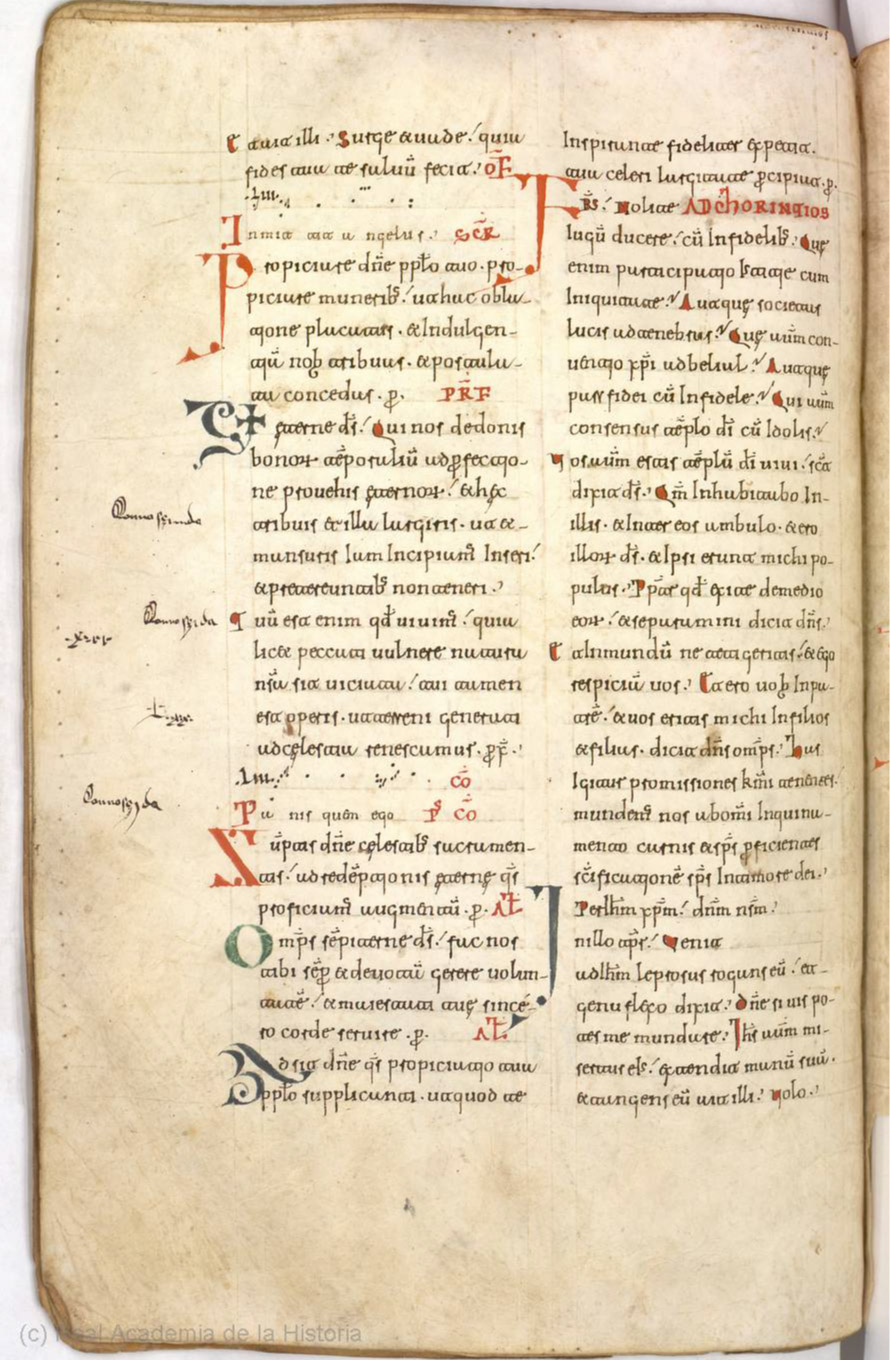 Et ait illi. Surge et uade. quia
fides tua te saluū fecit. OF
In mite ..... SCR
Propiciare dñe pplo tuo. pro-
piciare munerib. ut hac obla-
tione placatus. et Indulgen-
tiā nob tribuas. et postula-
ta concedas. p. PRF
et̄erne ds. Qui nos de donis
bonor tēporaliū ad pfectio-
ne prouehis ęternor. et hęc
tribuis et illa largiris. ut et
mansuris Iam Incipiam̄ Inseri.
et pretereuntib non teneri.
Tuū est enim qd uiuim̄. quia
licet peccati uulnere natura
nr̄a sit uiciata. tui tamen
est operis. ut terreni generati
ad cęlestia renascamur. pp̄.
CŌ
Panis quem ego Ps CŌ
Sūptis dñe cęlestib sacramen-
tis. ad redēptionis ęternę qs
proficiam̄ augmentū. p. AL
Omps sēpiterne ds. fac nos
tibi sēp et deuotā gerere uolun-
tatē. et maiestati tuę sincē-
ro corde seruire. p. AL
Adsit dñe qs propiciatio tua
pplo supplicanti. ut quod te
Inspirante fideliter expetit.
tua celeri largitate pcipiat. p.
FRS. Nolite AD CHORINTIOS
Iugū ducere. cū Infidelib. Quę
enim participatio Iustitię cum
Iniquitate. Aut quę societas
lucis ad tenebras. Quę autm̄ con-
uentio xpi ad belial. Aut quę
pars fidei cū Infidele. Qui autm̄
consensus tēplo dī cū Idolis.
Uos autm̄ estis tēplū dī uiui. sic̄
dixit ds. Qm̄ Inhabitabo In-
illis. et Inter eos ambulo. et ero
illor ds. et Ipsi erunt michi po-
pulus. Ppter qd exite de medio
eor. et separamini dicit dñs.
Et Inmundū ne tetigeritis. et ego
respiciā uos. Et ero uob Inpa-
trē. et uos eritis michi In filios
et filias. dicit dñs omps. Has
Igitur promissiones kmi tenētes.
mundem̄ nos ab omī Inquina-
mento carnis et sps pficientes
scificationē sps In timore dei.
Per Ihm xpm. dnm nsm.
In illo tprs. Uenit
ad Ihm leprosus rogans eū. et
genu flexo dixit. Dñe si uis po-
tes me mundare. Ihs autm̄ mi-
sertus eis. extendit manū suā.
et tangens eū ait illi. Uolo.
(c) Real Academia de la Historia